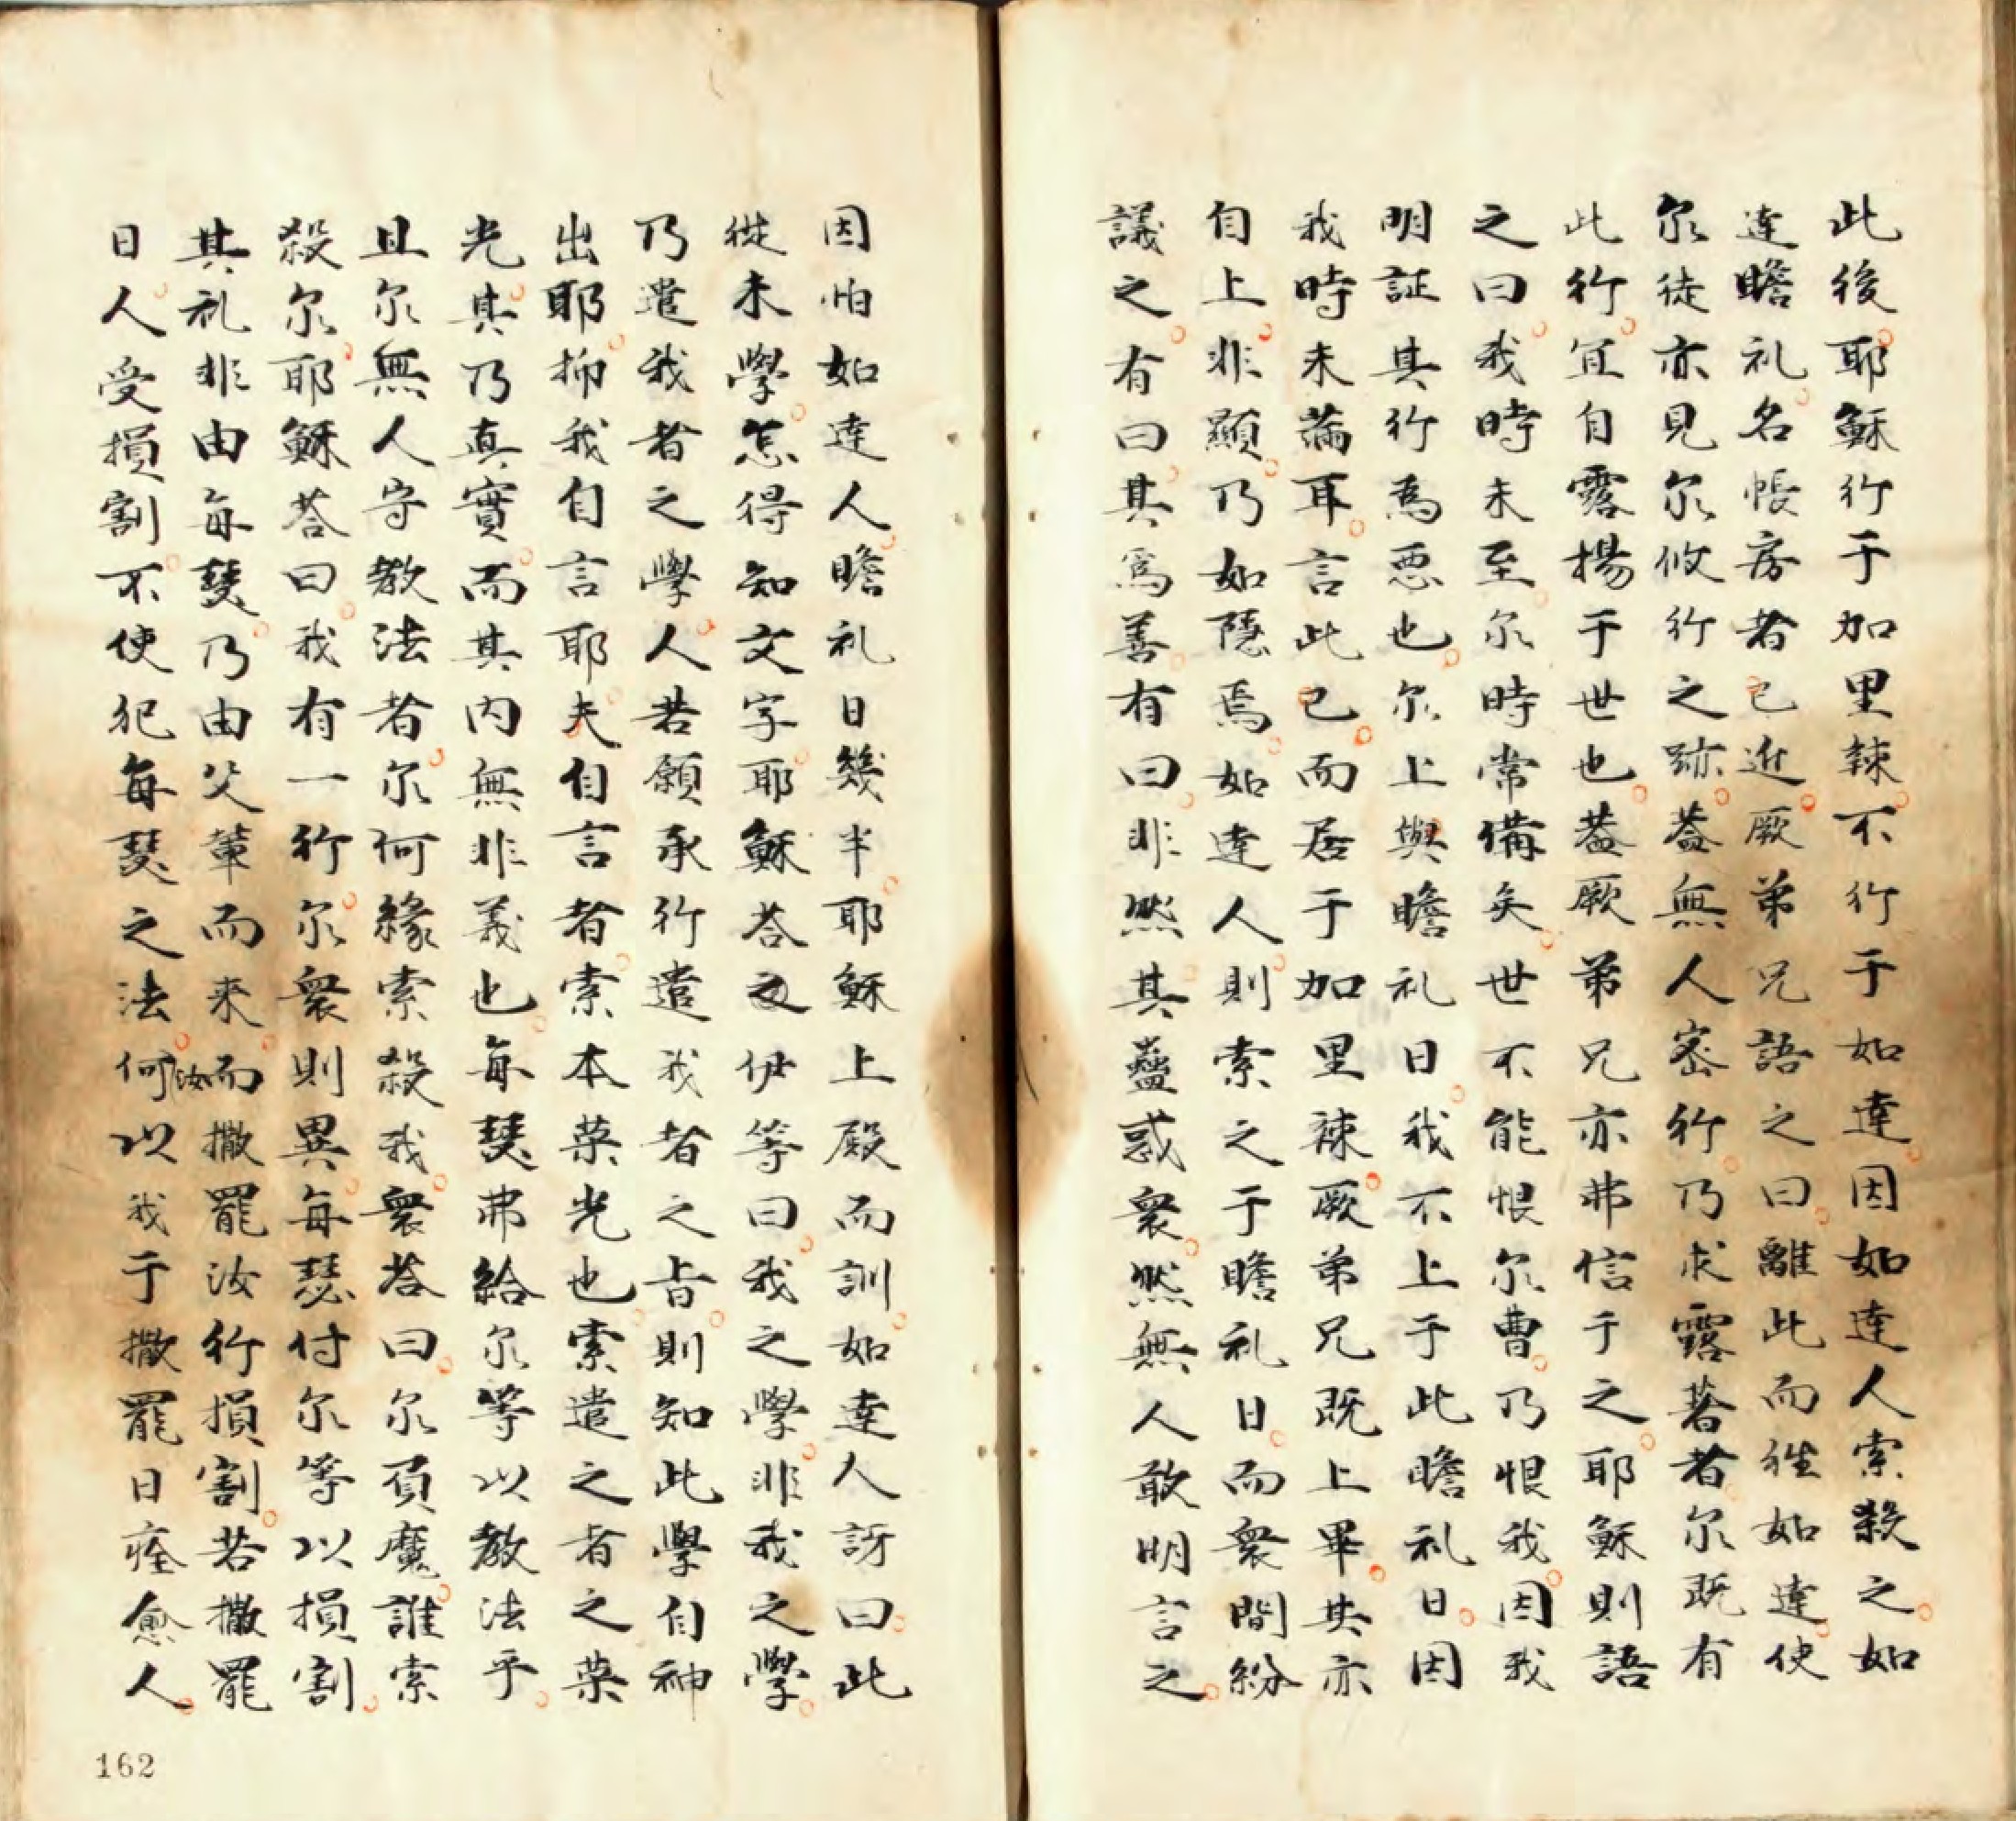 此後耶穌行于加里辣不行于如達因如達人索殺之如
達瞻礼名帳房者已近厥弟兄語之曰離此而徃如達使
尔徒亦見尔攸行之跡蓋無人宻行乃求露著者尔既有
此行宜自露揚于世也蓋厥弟兄亦弗信于之耶穌則語
之曰我時未至尔時常備矣世不能恨尔曹乃恨我因我
明証其行為惡也尔上與瞻礼日我不上于此瞻礼日因
我時未滿耳言此已而居于加里辣厥弟兄既上畢其亦
自上非顯乃如隱焉如達人則索之于瞻礼日而衆間紛
議之有曰其為善有曰非然其蠱惑衆然無人敢明言之
因怕如達人瞻礼日幾半耶穌上殿而訓如達人訝曰此
從未學怎得知文字耶穌荅伊等曰我之學非我之學
乃遣我者之學人若願承行遣我者之旨則知此學自神
出耶抑我自言耶夫自言者索本榮光也索遣之者之榮
光其乃真實而其内無非義也每瑟弗給尔等以教法乎
且尔無人守教法者尔何緣索殺我衆荅曰尔負魔誰索
殺尔耶穌荅曰我有一行尔衆則異每瑟付尔等以損割
其礼非由每瑟乃由父輩而来而撒罷汝行損割若撒罷
日人受損割不使犯每瑟之法何汝以我于撒罷日痊愈人
162